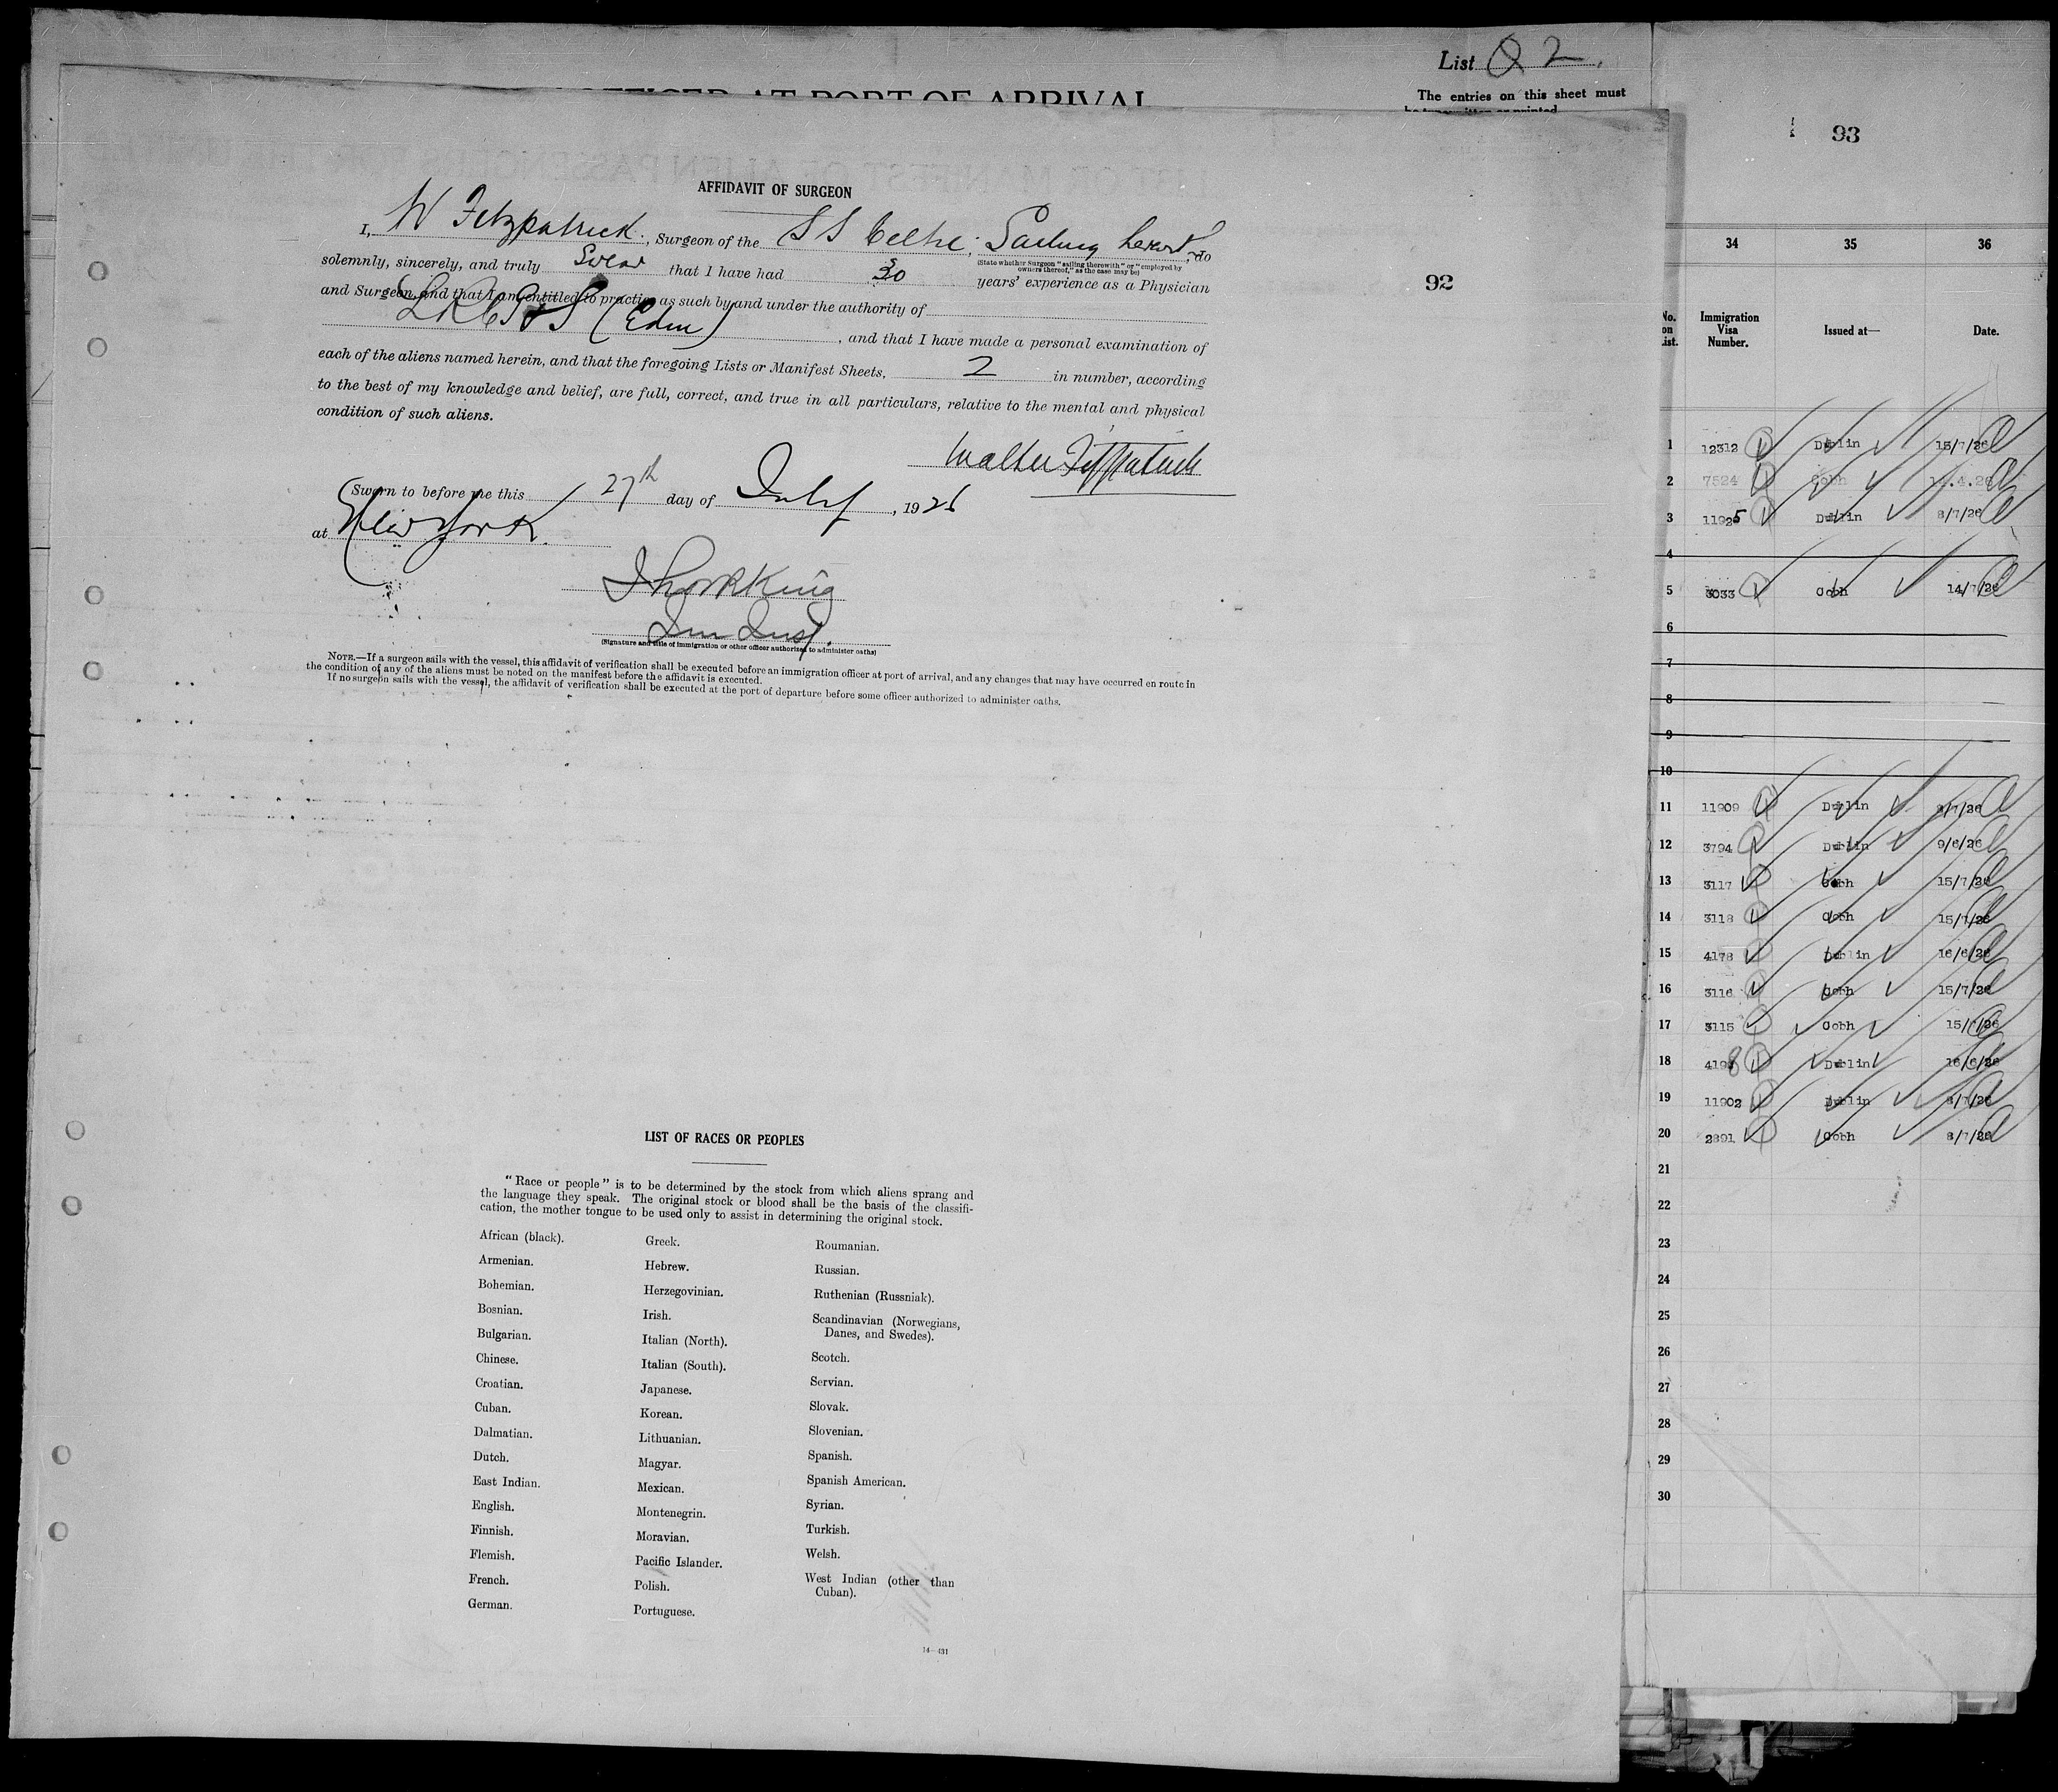 List Q 2.
The entries on this sheet must
93
92
AFFIDAVIT OF SURGEON
I, W Fitzpatrick, Surgeon of the S S Celtic; Sailing, do
(State whether Surgeon "sailing therewith" or "employed by
owners thereof," as the case may be)
solemnly, sincerely, and truly Swear that I have had 30 years' experience as a Physician
and Surgeon, and that I am entitled to practice as such by and under the authority of
(Edin), and that I have made a personal examination of
each of the aliens named herein, and that the foregoing Lists or Manifest Sheets, 2 in number, according
to the best of my knowledge and belief, are full, correct, and true in all particulars, relative to the mental and physical
condition of such aliens.
Walter Fitzpatrick
Sworn to before me this 27th day of July, 1926
at New York.
King
Imm Insp.
(Signature and title of immigration or other officer authorized to administer oaths)
NOTE.—If a surgeon sails with the vessel, this affidavit of verification shall be executed before an immigration officer at port of arrival, and any changes that may have occurred en route in
the condition of any of the aliens must be noted on the manifest before the affidavit is executed.
If no surgeon sails with the vessel, the affidavit of verification shall be executed at the port of departure before some officer authorized to administer oaths.
LIST OF RACES OR PEOPLES
"Race or people" is to be determined by the stock from which aliens sprang and
the language they speak. The original stock or blood shall be the basis of the classifi-
cation, the mother tongue to be used only to assist in determining the original stock.
African (black).
Armenian.
Bohemian.
Bosnian.
Bulgarian.
Chinese.
Croatian.
Cuban.
Dalmatian.
Dutch.
East Indian.
English.
Finnish.
Flemish.
French.
German.
Greek.
Hebrew.
Herzegovinian.
Irish.
Italian (North).
Italian (South).
Japanese.
Korean.
Lithuanian.
Magyar.
Mexican.
Montenegrin.
Moravian.
Pacific Islander.
Polish.
Portuguese.
Roumanian.
Russian.
Ruthenian (Russniak).
Scandinavian (Norwegians,
Danes, and Swedes).
Scotch.
Servian.
Slovak.
Slovenian.
Spanish.
Spanish American.
Syrian.
Turkish.
Welsh.
West Indian (other than
Cuban).
14—431
34 35 36
No. on List. Immigration Visa Number. Issued at— Date.
1 12312 Dublin 15/7/26
2 7524 Cobh 14.4.26
3 11925 Dublin 8/7/26
4
5 3033 Cobh 14/7/26
6
7
8
9
10
11 11909 Dublin 8/7/26
12 3794 Dublin 9/6/26
13 3117 Cobh 15/7/26
14 3118 Cobh 15/7/26
15 4178 Dublin 16/6/26
16 3116 Cobh 15/7/26
17 3115 Cobh 15/7/26
18 4198 Dublin 16/6/26
19 11902 Dublin 8/7/26
20 2891 Cobh 8/7/26
21
22
23
24
25
26
27
28
29
30